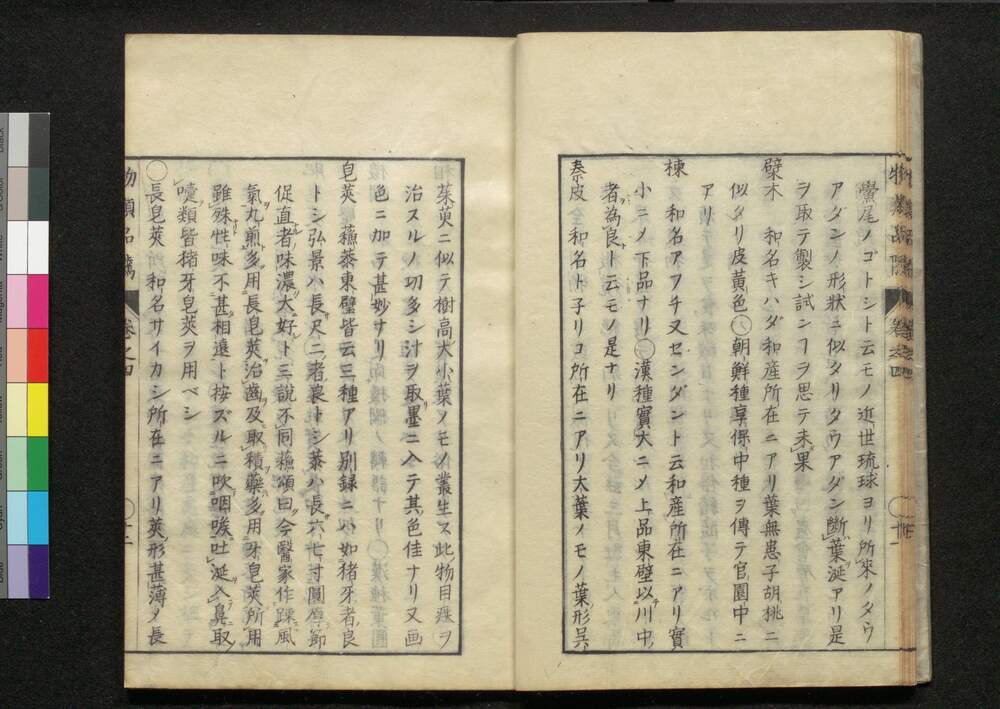 物類品隲 卷之四 十一
鸞尾ノゴトシト云モノ近世琉球ヨリ所來ノタウ
アダンノ形狀ニ似タリタウアダン斷葉涎アリ是
ヲ取テ製シ試ンヿヲ思テ未果
檗木 和名キハダ和産所在ニアリ葉無患子胡桃ニ
似タリ皮黄色〇朝鮮種享保中種ヲ傳テ官園中ニ
アリ
楝 和名アフチ又センダント云和産所在ニアリ實
小ニメ下品ナリ〇漢種實大ニメ上品東壁以川中
者為良ト云モノ是ナリ
秦皮 和名ト子リコ所在ニアリ大葉ノモノ葉形呉
茱萸ニ似テ樹高大小葉ノモノ叢生ス此物目疾ヲ
治スルノ切多シ汁ヲ取墨ニ入テ其色佳ナリ又画
色ニ加テ甚妙ナリ
皂莢 蘓恭東壁皆云三種アリ別録ニハ如猪牙者良
トシ弘景ハ長尺二者良トシ恭ハ長六七寸圓厚節
促直者味濃大好ト三説不同蘓頌曰今醫家作踈風
氣丸煎多用長皂莢治齒及取積藥多用牙皂莢所用
雖殊性味不甚相遠ト按ズルニ吹咽唉吐涎入鼻取
嚏類皆猪牙皂莢ヲ用ベシ
〇長皂莢 和名サイカシ所在ニアリ莢形甚薄メ長
物類品隲 卷之四 十二